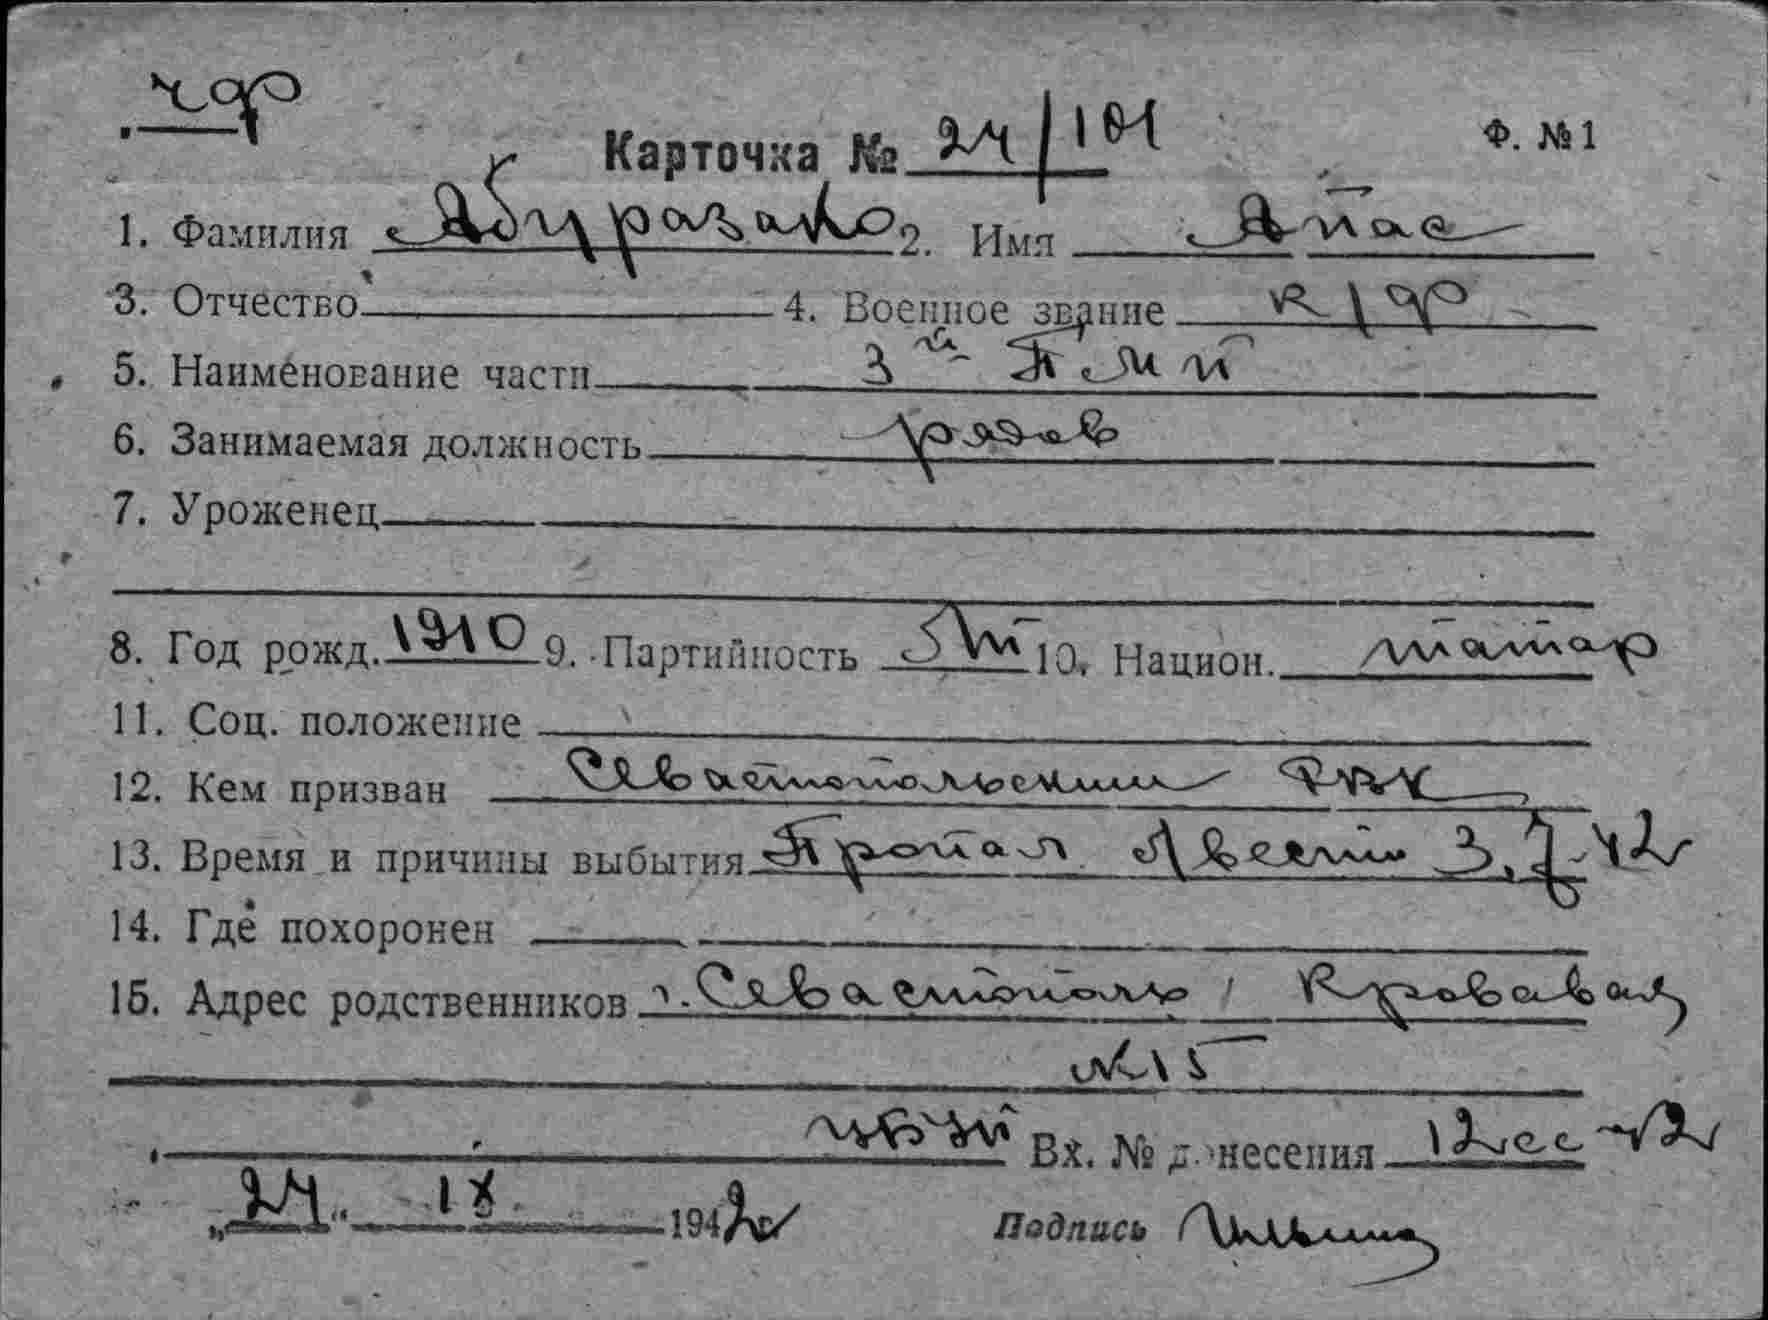 кчф
Карточка № 24/101 Ф. №1
1. Фамилия Абуразако 2. Имя Апас
3. Отчество 4. Военное звание к/чф
5. Наименование части 3й П
6. Занимаемая должность рядов
7. Уроженец
8. Год рожд. 1910 9. Партийность б/п 10. Национ. татар
11. Соц. положение
12. Кем призван Севастопольским РВК
13. Время и причины выбытия Пропал без вести 3.7-42
14. Где похоронен
15. Адрес родственников г. Севастополь
№15
Вх. № донесения 12сс-42
„24“ IX 1942
Подпись